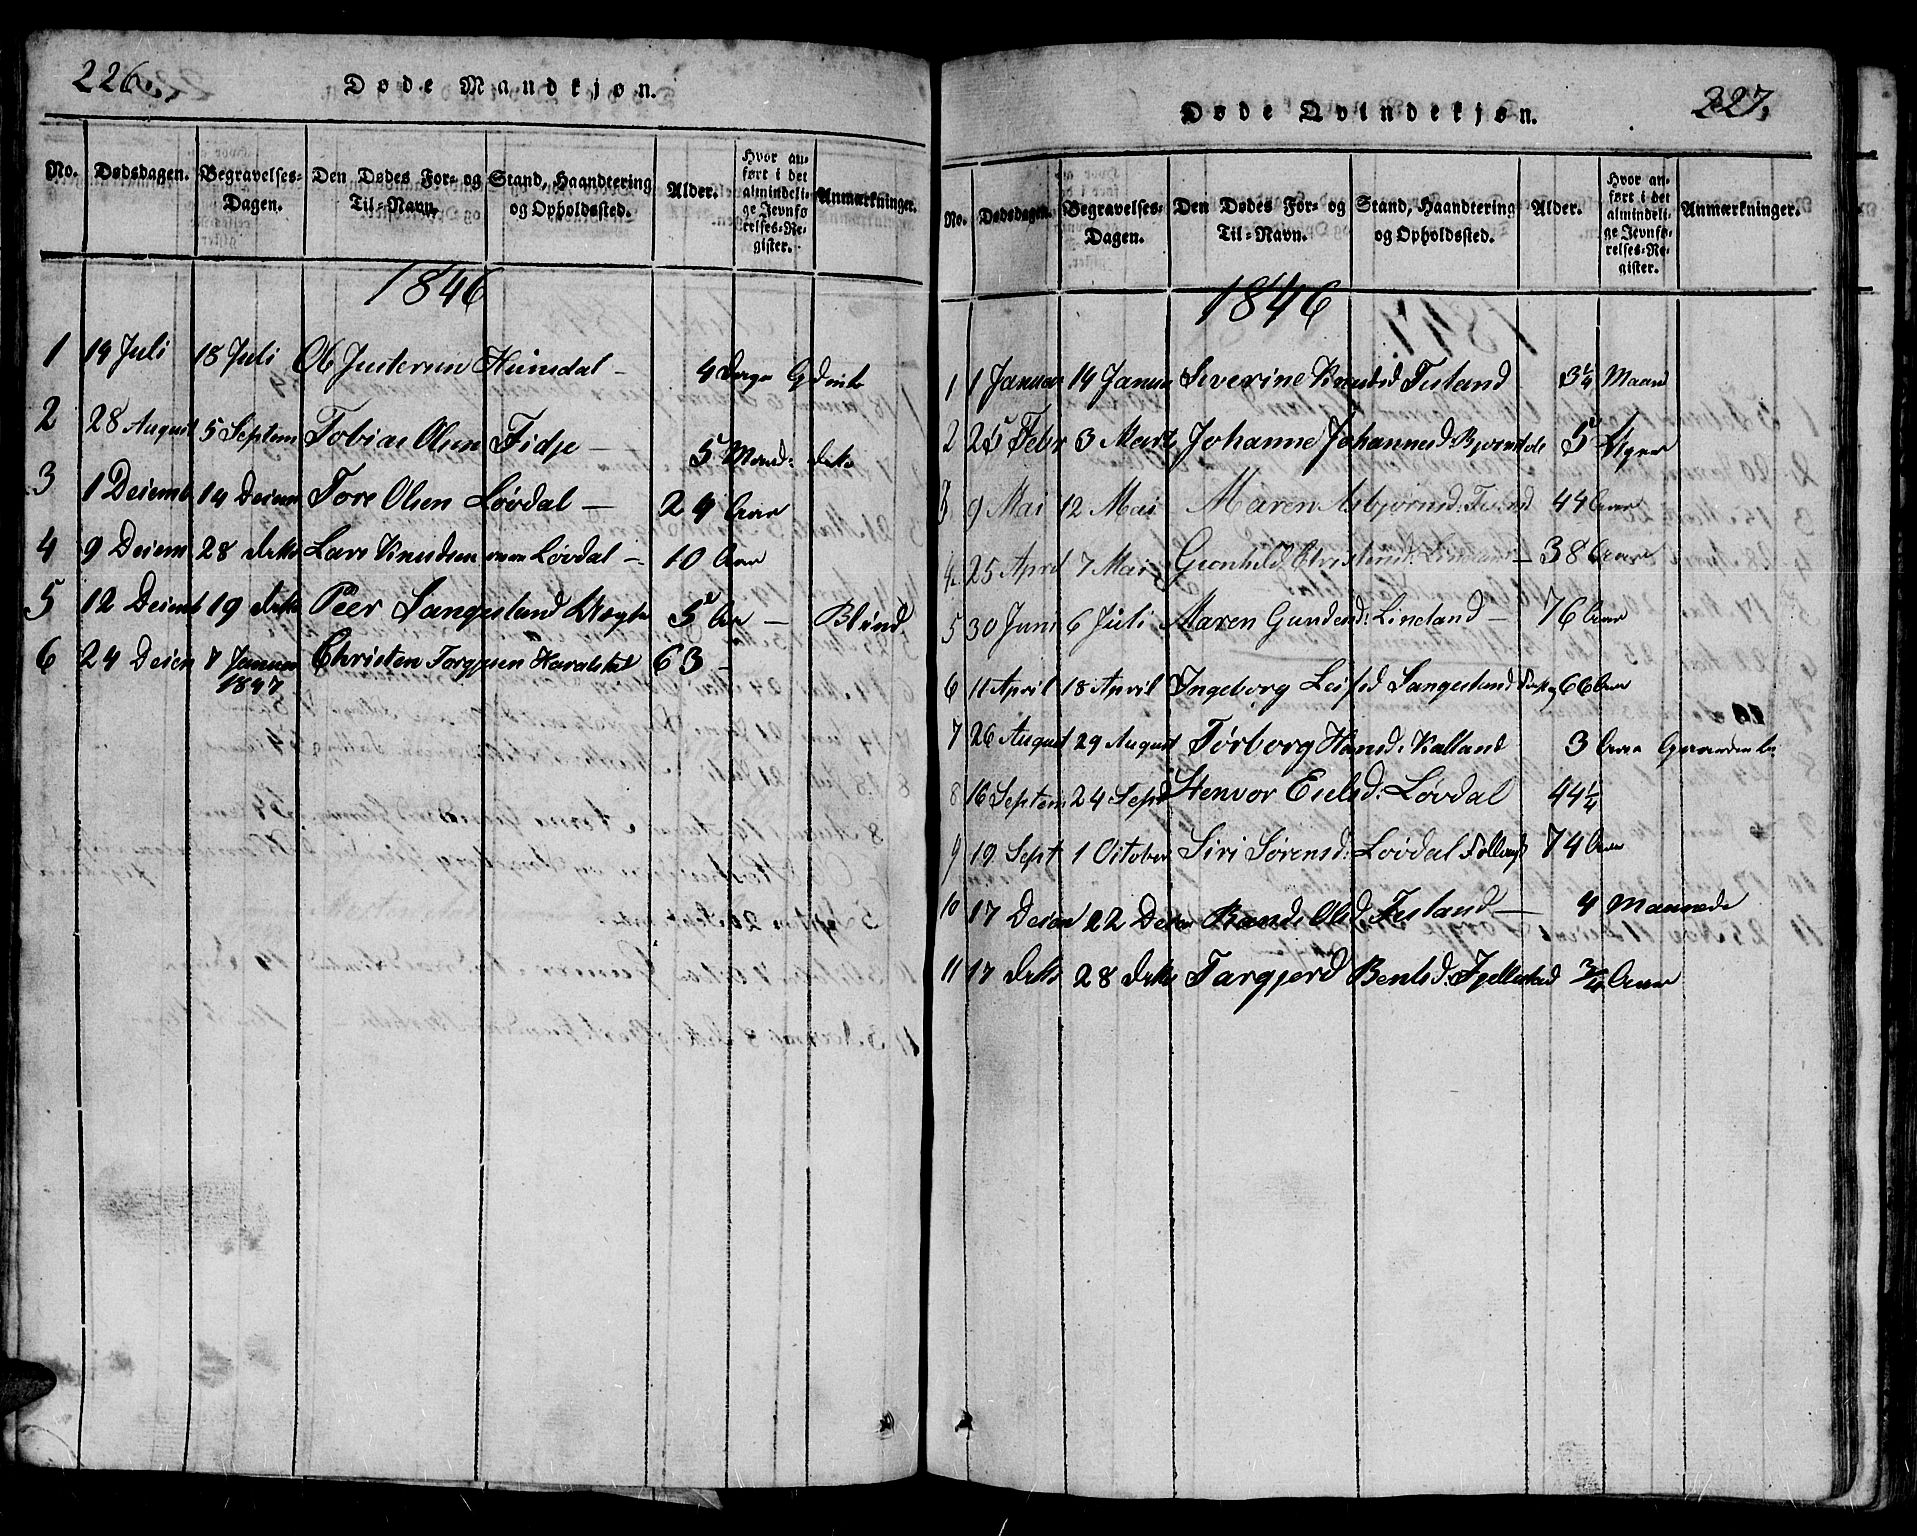 226.
Døde Mandkjøn.
No. Dødsdagen. Begravelses-Dagen. Den Dødes For- og Til-Navn. Stand, Haandtering og Opholdssted. Alder. Hvor anført i det almindelige Jevnførelses-Register. Anmærkninger.
1846
1 14 Juli 18 Juli Ole Justersen Heimdal — 4 Dage
2 28 August 5 Septem Tobias Olsen Fidje — 5 Maand: dito
3 1 Decemb 14 Decem Tore Olsen Løvdal — 29 Aar
4 9 Decem 28 dito Lars Knudsen Løvdal — 10 Aar
5 12 Decemb 19 dito Peer Langesland Lægsl 5 Aar — Blind
6 24 Decem 7 Januar Christen Torgjusen Haralstad 63 —
1847
227.
Døde Qvindekjøn.
No. Dødsdagen. Begravelses-Dagen. Den Dødes For- og Til-Navn. Stand, Haandtering og Opholdssted. Alder. Hvor anført i det almindelige Jevnførelses-Register. Anmærkninger.
1846
1 1 Januar 14 Januar Severine Knudsd Fesland 3¼ Maan
2 25 Febr 3 Marts Johanne Johannesd: 5
3 9 Mai 12 Mai Maren Asbjørnsd: Fesland 44 Aar
4 25 April 7 Mai Gunhild Christensd: Lineland — 38 Aar
5 30 Juni 6 Juli Maren Gundersd: Lineland — 76 Aar
6 11 April 18 April Ingeborg Leifsd Langesland 66 Aar
7 26 August 29 August Torborg Hansd: Kalland 3 Aar
8 16 Septem 24 Sept Stenvor Eielsd: Løvdal 44¼
9 19 Sept 1 October Siri Sørensd: Løvdal 74 Aar
10 17 Decem 22 Decem Olsd. Fesland — 4 Maaneder
11 17 dito 28 dito Targjerd Bentsd: Fjellestad ¾ Aar